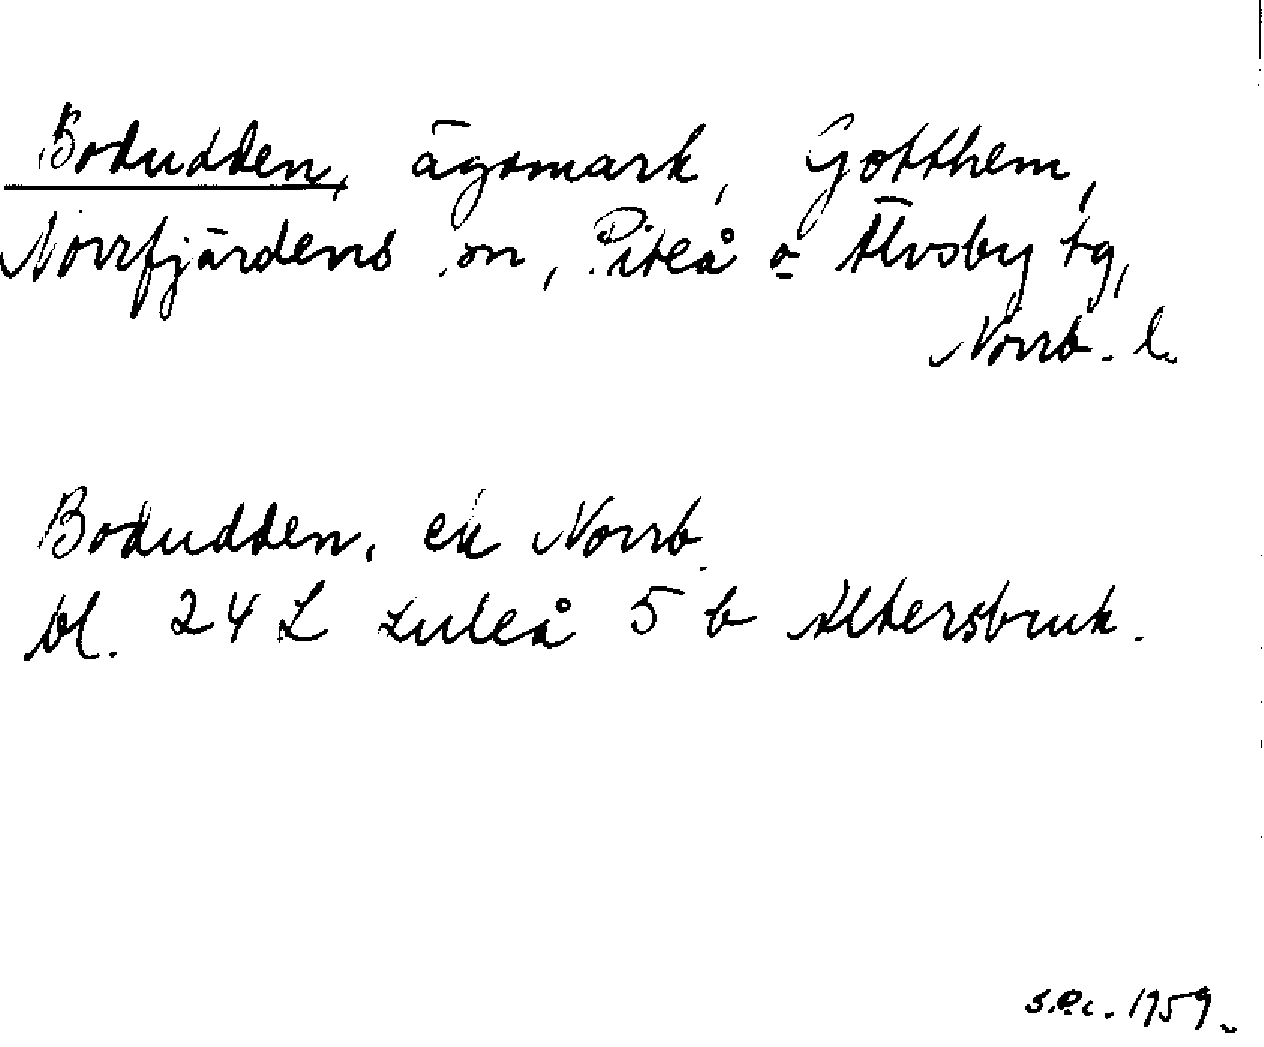 Bodudden, ägomark, Gotthem,
Norrfjärdens sn, Piteå o Älvsby tg,
Norrb. l.
Bodudden, ek Norrb.
bl. 24 L Luleå 5 b Altersbruk.
s.e.c. 1959.